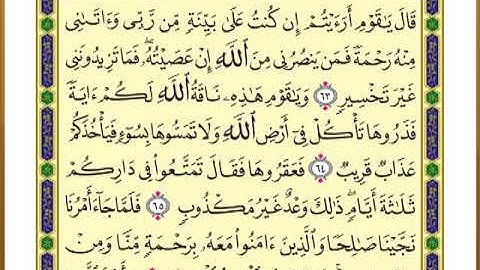 قَالَ يَـٰقَوْمِ أَرَءَيْتُمْ إِن كُنتُ عَلَىٰ بَيِّنَةٍ مِّن رَّبِّى وَءَاتَىٰنِى
مِنْهُ رَحْمَةً فَمَن يَنصُرُنِى مِنَ ٱللَّهِ إِنْ عَصَيْتُهُۥ ۖ فَمَا تَزِيدُونَنِى
غَيْرَ تَخْسِيرٍ ٦٣ وَيَـٰقَوْمِ هَـٰذِهِۦ نَاقَةُ ٱللَّهِ لَكُمْ ءَايَةً
فَذَرُوهَا تَأْكُلْ فِىٓ أَرْضِ ٱللَّهِ وَلَا تَمَسُّوهَا بِسُوٓءٍ فَيَأْخُذَكُمْ
عَذَابٌ قَرِيبٌ ٦٤ فَعَقَرُوهَا فَقَالَ تَمَتَّعُوا۟ فِى دَارِكُمْ
ثَلَـٰثَةَ أَيَّامٍ ۖ ذَٰلِكَ وَعْدٌ غَيْرُ مَكْذُوبٍ ٦٥ فَلَمَّا جَآءَ أَمْرُنَا
نَجَّيْنَا صَـٰلِحًا وَٱلَّذِينَ ءَامَنُوا۟ مَعَهُۥ بِرَحْمَةٍ مِّنَّا وَمِنْ